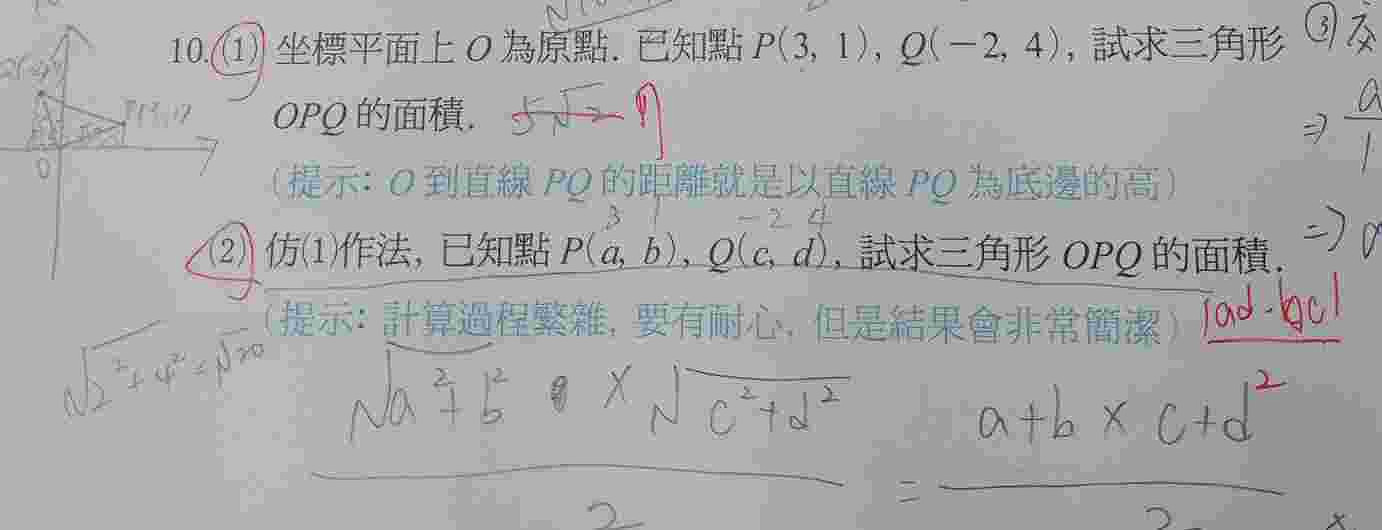 10.(1) 坐標平面上 O 為原點. 已知點 P(3, 1), Q(-2, 4), 試求三角形
OPQ 的面積. 5√2 7
(提示: O 到直線 PQ 的距離就是以直線 PQ 為底邊的高)
3 1 -2 4
(2) 仿(1)作法, 已知點 P(a, b), Q(c, d), 試求三角形 OPQ 的面積.
(提示: 計算過程繁雜, 要有耐心, 但是結果會非常簡潔) |ad-bc|
2
√2²+4²=√20
√a²+b² × √c²+d² = a+b × c+d²
2 2
P(3,1)
O
③
⇒ a
1
⇒ a